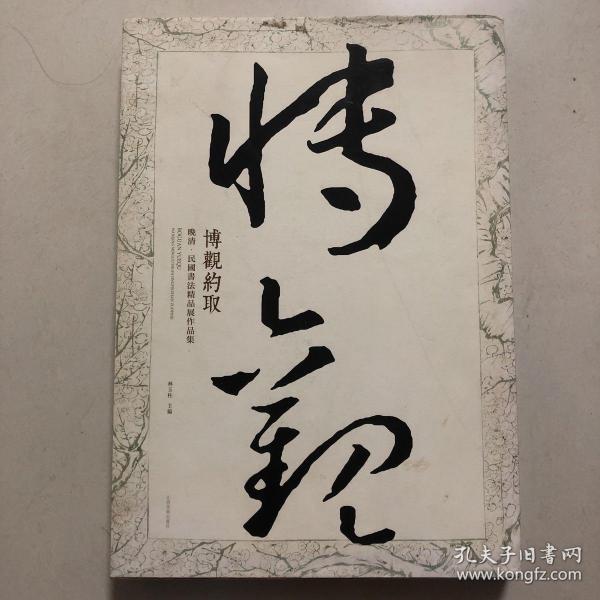 博觀
博觀約取
晚清·民國書法精品展作品集
BOGUAN YUEQU
林玉柱 主編
孔夫子旧书网
www.kongfz.com